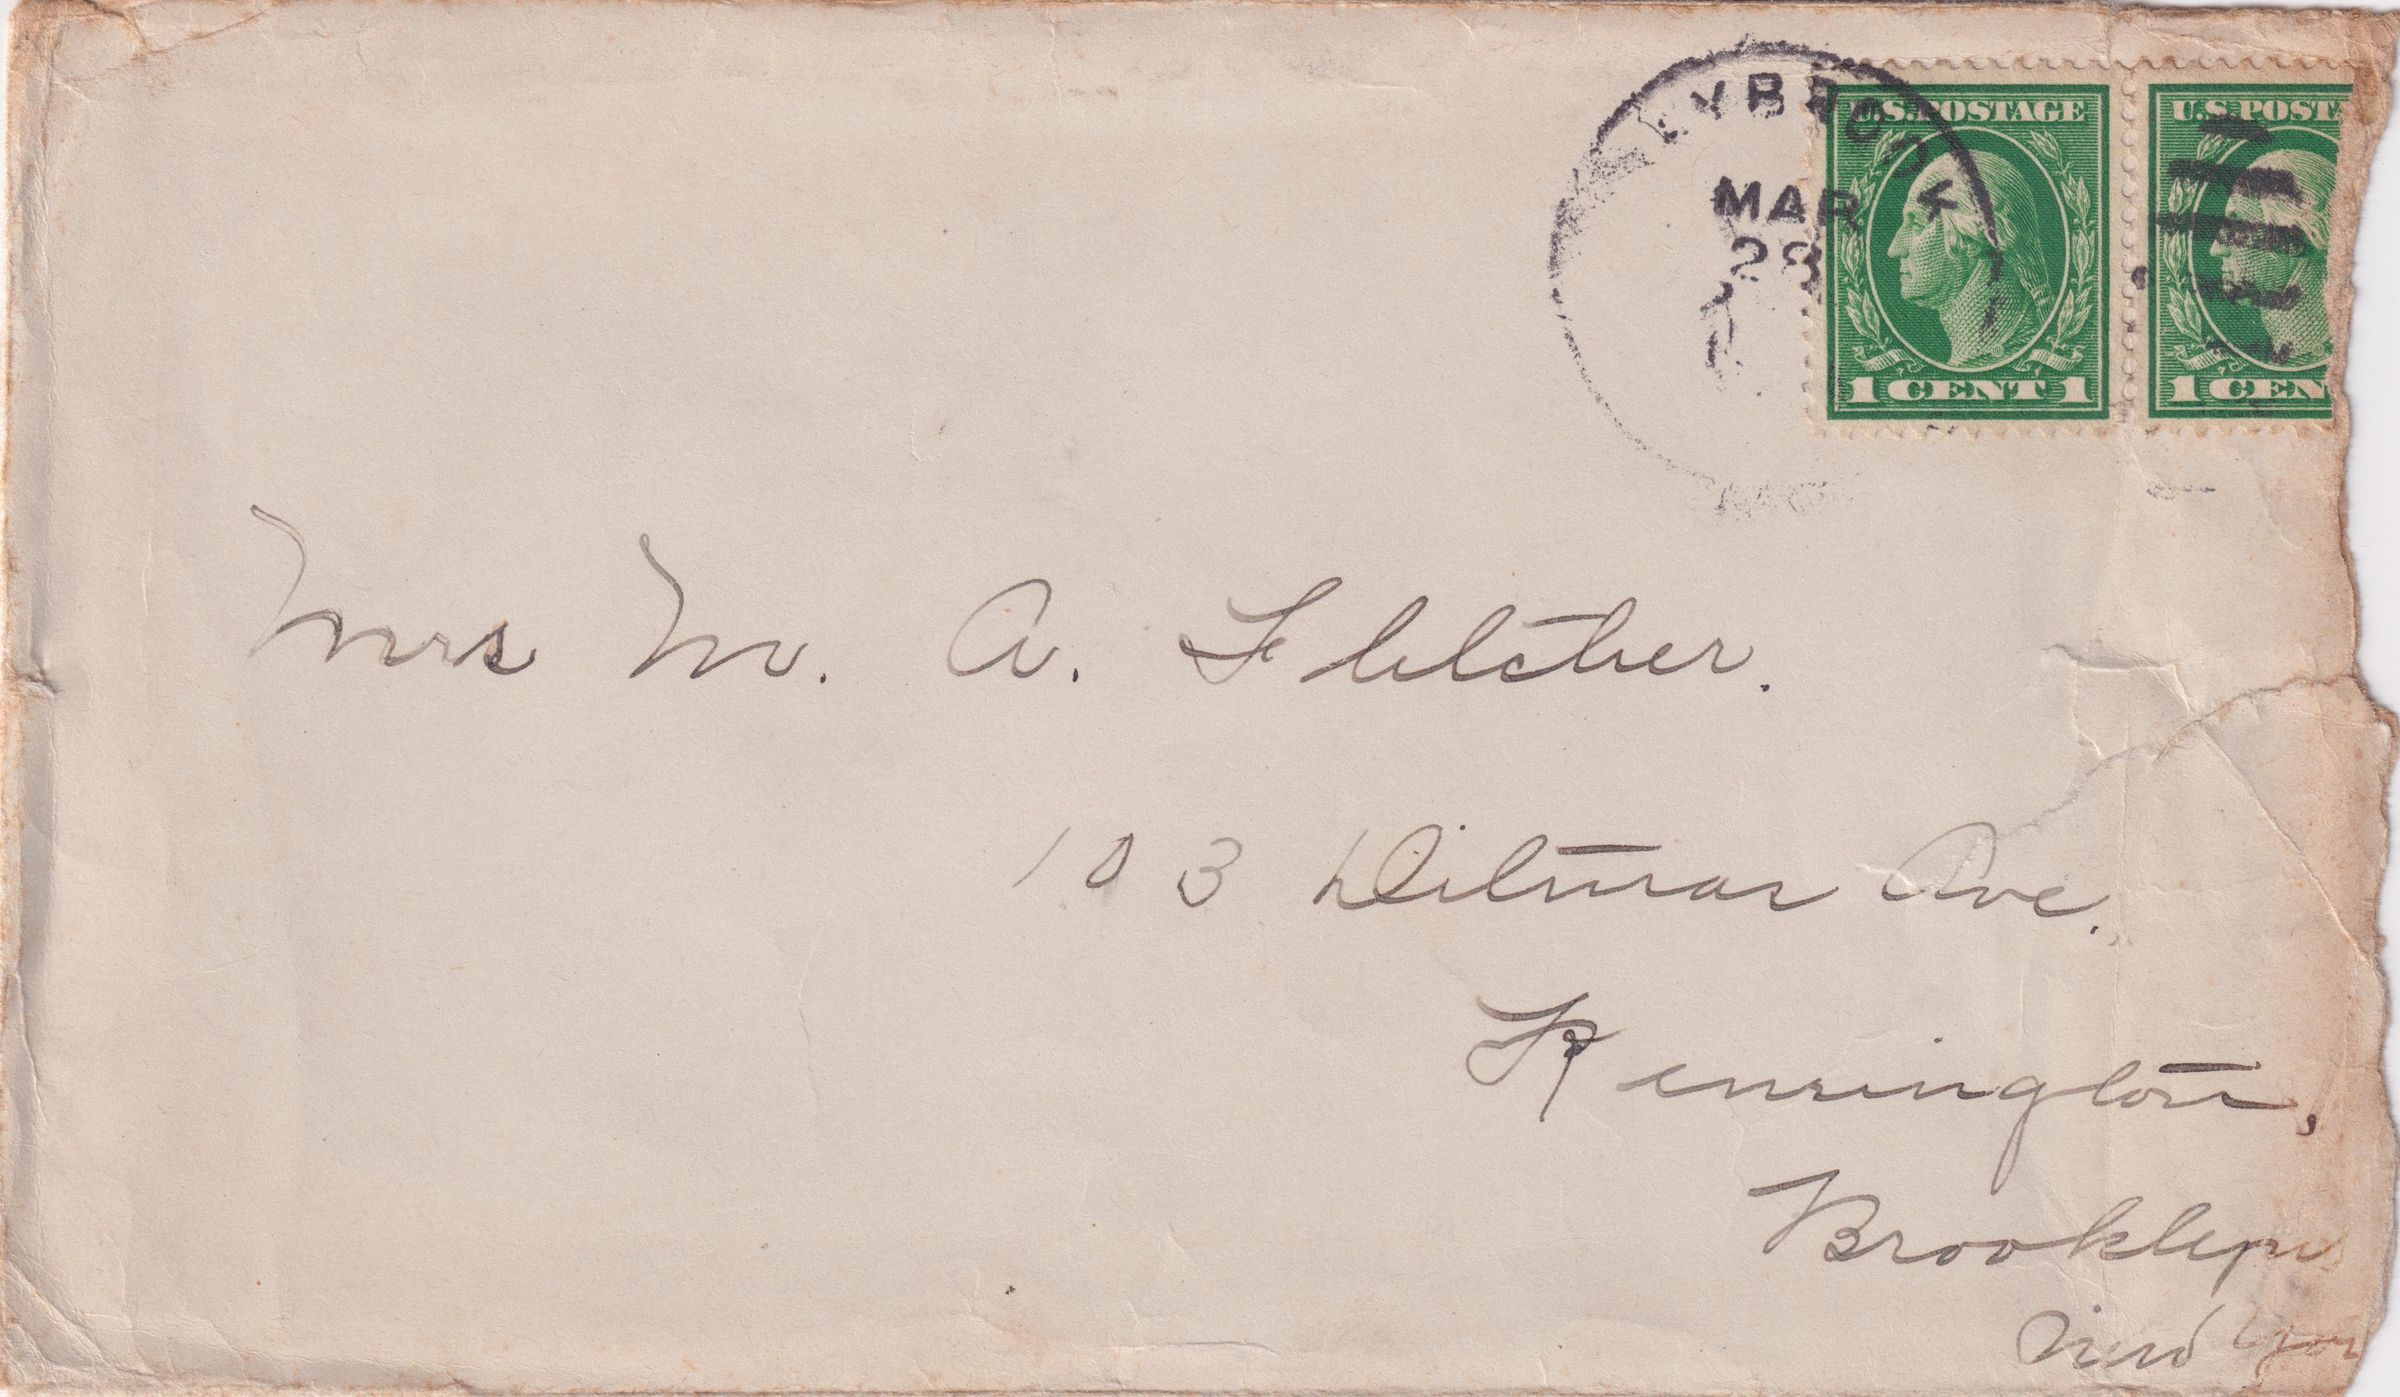 LYBROOK
MAR
28
U.S. POSTAGE
1 CENT 1
U.S. POSTA
1 CEN
Mrs M. A. Fletcher.
103 Ditmar Ave.
Kensington,
Brooklyn
New Yor